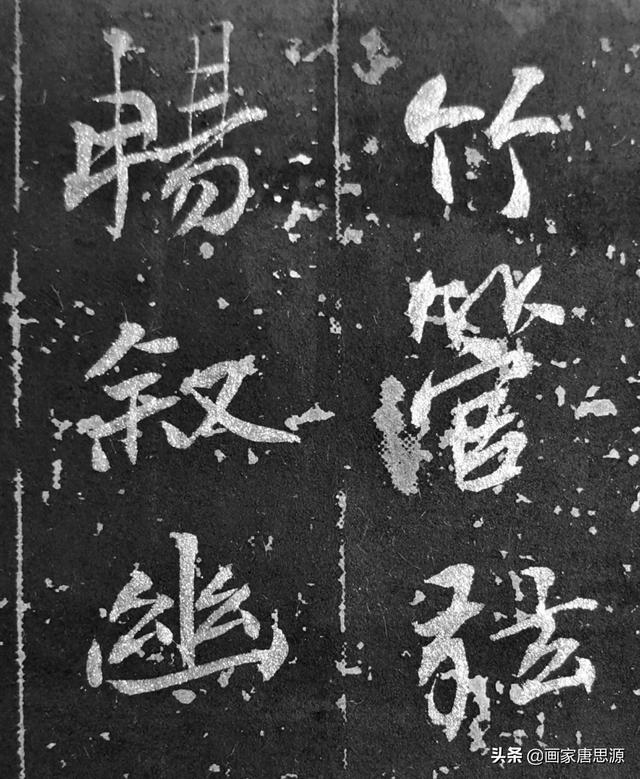 竹管弦
暢叙幽
头条 @画家唐思源